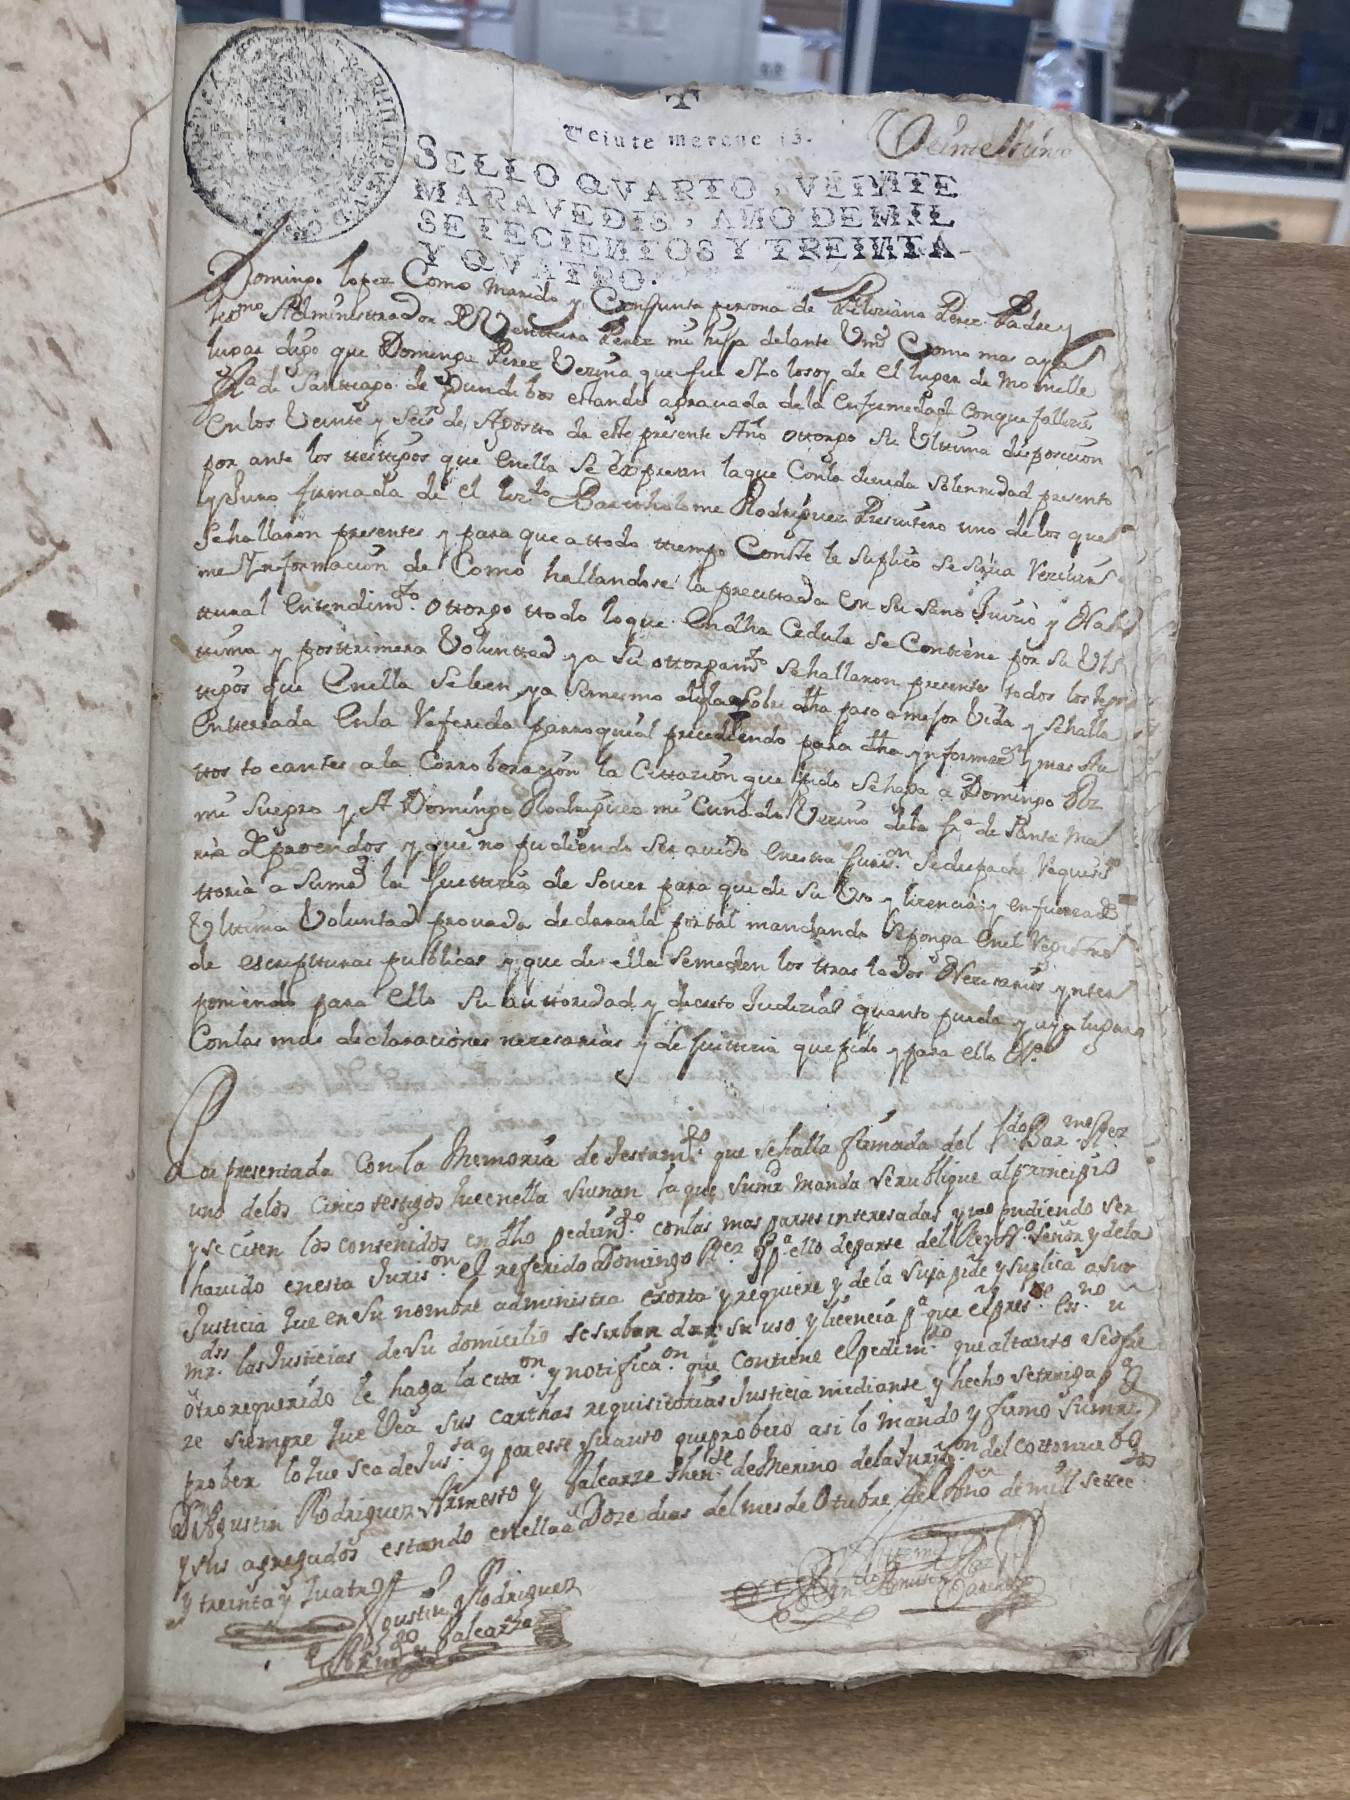 PHILIPPVS V D G
Veinte marave is.
SELLO QVARTO, VEINTE
MARAVEDIS, AÑO DE MIL
SETECIENTOS Y TREINTA
Y QVATRO.
Domingo lopez Como Marido y Conjunta persona de Perez Padre y
lixmo Administrador de Venttura Perez mi hija delante Vmd Como mas aya
lugar digo que Dominga Perez Vezina que fue Y lo soy de el lugar de Mornelle
fra. de Santtiago de Gundibos estando agravada de la enfermedad Conque fallezio
En los Veintte y seis de Agostto de este presente Año ottorgo su Ulttima disposicion
por ante los ttestigos que Enella se expresan la que Con la devida solennidad presento
y Juro firmada de el lizdo Bartholome Rodriguez Presvitero uno de los que
se hallaron presentes y para que a ttodo ttiempo Conste le suplico se sirva
me Ynformacion de Como hallandose la precittada en su sano Juicio y Na
ttural Entendimto. ottorgo ttodo lo que Endha Cedula se Contiene por su Ul
ttima y posttrimera Volunttad y a su ottorgamto se hallaron presentes todos los
ttigos que Enella se leen, y a simesmo de la sobre dha paso a mejor Vida y se halla
Entterrada En la Referida parroquial precediendo para dha ynformazn y mas
ttos tocantes a la Corroboracion la Cittazion que pido se haga a Domingo Prz
mi Suegro y A Domingo Rodriguez mi Cuñado Vezino de la fra de Santa Ma
ria de proendos y que no pudiendo ser avido Enestta Jurison. se despache Requisi
ttoria a sumd la Justticia de Sover para que de su Uso y licencia y en fuerza de
Ulttima Voluntad provada declararla por tal mandando se ponga En el Registtro
de escriptturas publicas y que de ella se me den los ttraslados Nezesarios ynter
poniendo para ello su auttoridad y decreto Judizial quanto pueda y aya lugar
Con las mas declaraciones nezesarias y de Justticia que pido y para ello &a
Por presentada con la Memoria de testamto. que se halla firmada del Ldo Barme Rrez
uno delos Cinco testigos que enella suenan la que sumrd manda se rublique al principio
y se citen los contenidos en dho pedimto. con las mas partes interesadas y no pudiendo ser
havido enesta Jurison. el referido Domingo Rrez pa. ello de parte del Rey Nro. Señor y de la
Justicia que en su nombre administra exorta y requiere y de la suia pide y suplica a sus
mrdss. las Justicias de su domicilio se sirban dar su uso y licencia pa que el presste. essno. u
otro requerido le haga la citaon. y notificaon. que contiene el pedimto que al tanto se ofre
ze siempre que Vea sus carthas requisitorias Justicia mediante y hecho se traiga pa
prober lo que sea de Justa. y por este su auto que probeio asi lo mando y firmo Sumrd
D Agustin Rodriguez Armesto y Balcarze thente de Merino de la Jurison del cotto
y sus agregados estando enella a Doze dias del mes de Otubre del Año de mill settectos
y treinta y quatro
Agustin Rodriguez
Armto y Balcarze